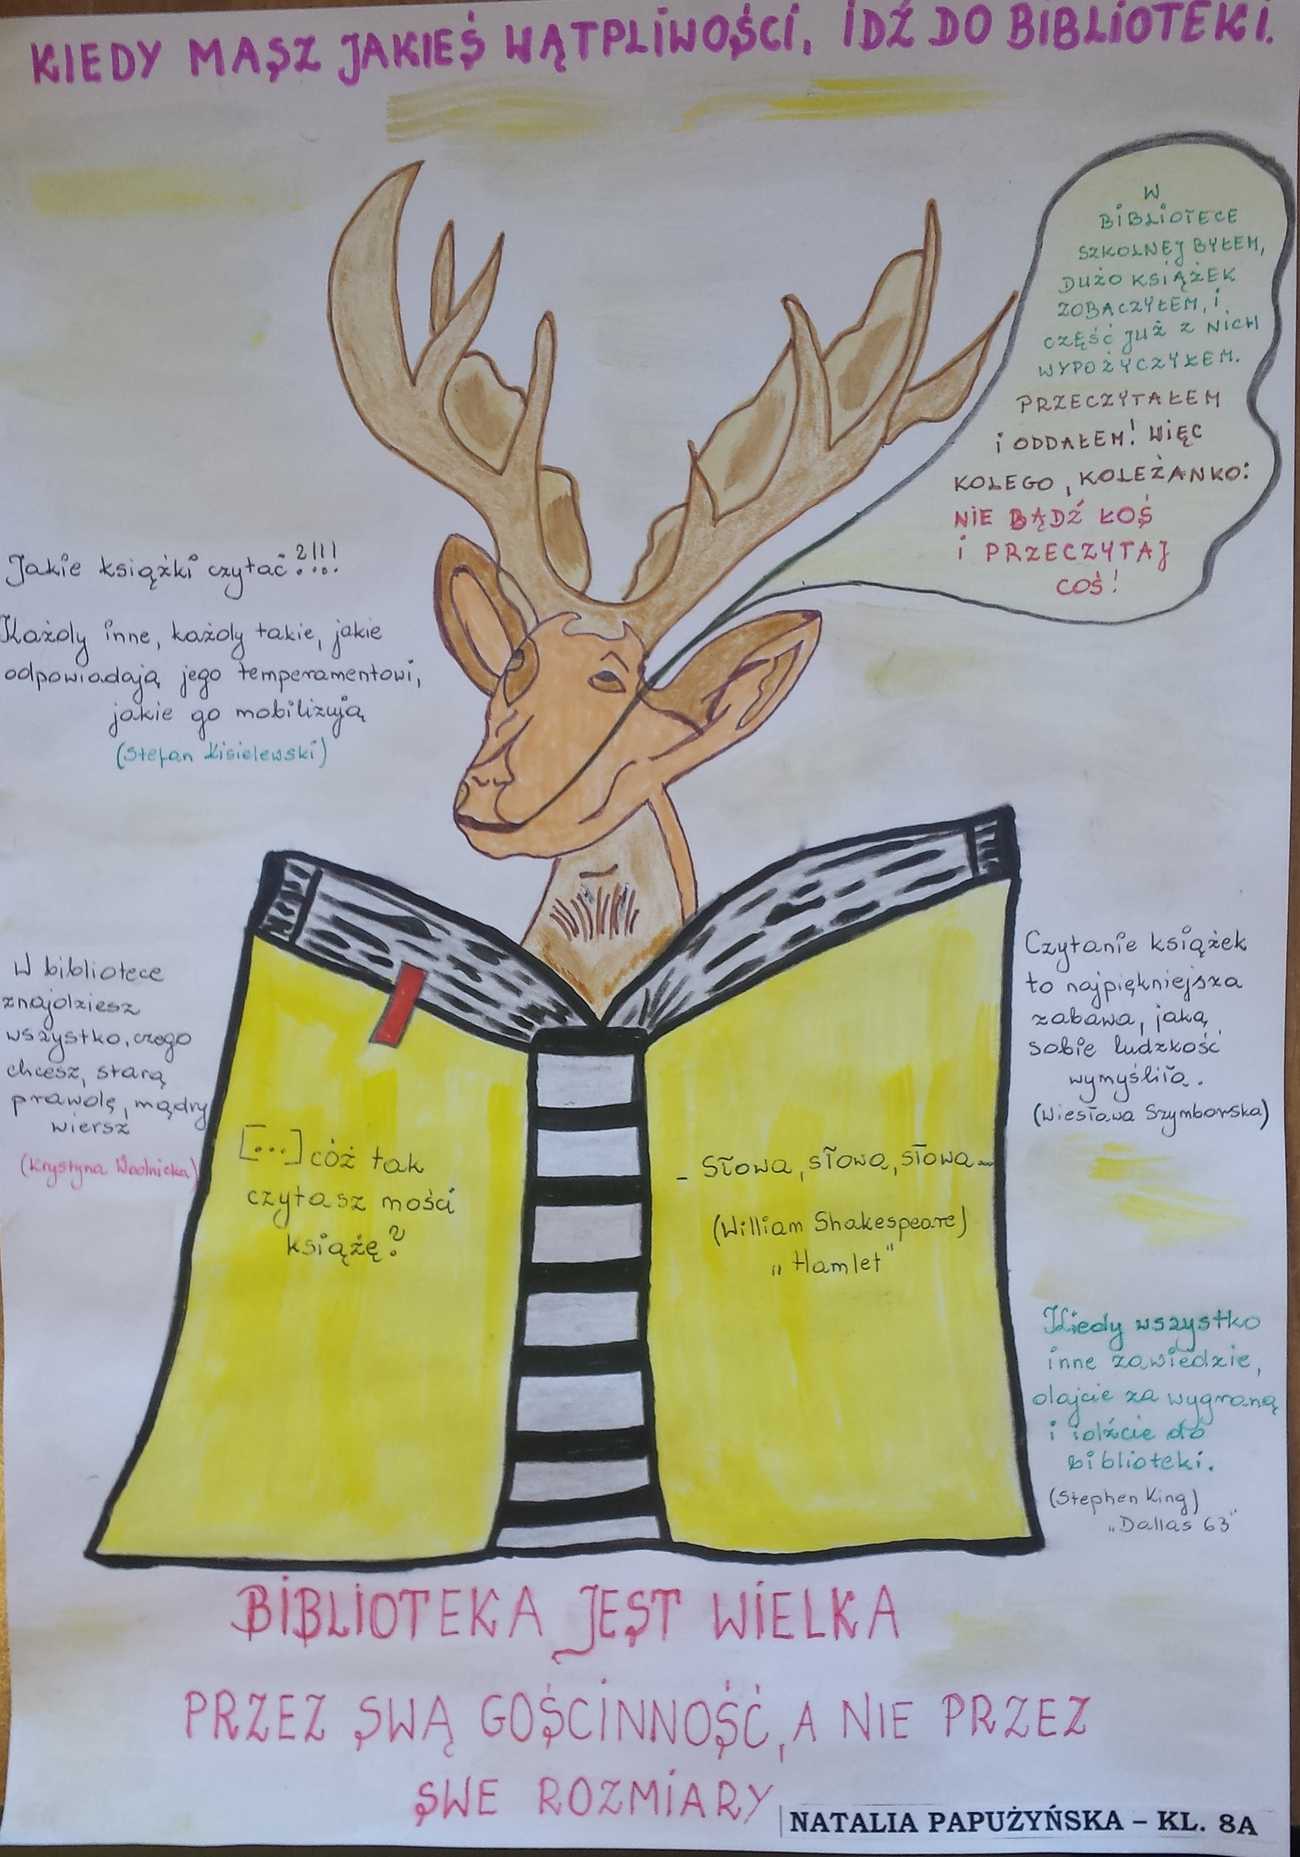 KIEDY MASZ JAKIEŚ WĄTPLIWOŚCI, IDŹ DO BIBLIOTEKI.
W
BIBLIOTECE
SZKOLNEJ BYŁEM,
DUŻO KSIĄŻEK
ZOBACZYŁEM, I
CZĘŚĆ JUŻ Z NICH
WYPOŻYCZYŁEM.
PRZECZYTAŁEM
I ODDAŁEM! WIĘC
KOLEGO, KOLEŻANKO:
NIE BĄDŹ ŁOŚ
I PRZECZYTAJ
COŚ!
Jakie książki czytać?!!!
Każdy inne, każdy takie, jakie
odpowiadają jego temperamentowi,
jakie go mobilizują
(Stefan Kisielewski)
W bibliotece
znajdziesz
wszystko, czego
chcesz, starą
prawdę, mądry
wiersz
(Krystyna Wodnicka)
[...] cóż tak
czytasz mości
książę?
- Słowa, słowa, słowa...
(William Shakespeare)
„Hamlet"
Czytanie książek
to najpiękniejsza
zabawa, jaką
sobie ludzkość
wymyśliła.
(Wiesława Szymborska)
Kiedy wszystko
inne zawiedzie,
dajcie za wygraną
i idźcie do
biblioteki.
(Stephen King)
„Dallas 63"
BIBLIOTEKA JEST WIELKA
PRZEZ SWĄ GOŚCINNOŚĆ, A NIE PRZEZ
SWE ROZMIARY
NATALIA PAPUŻYŃSKA – KL. 8A